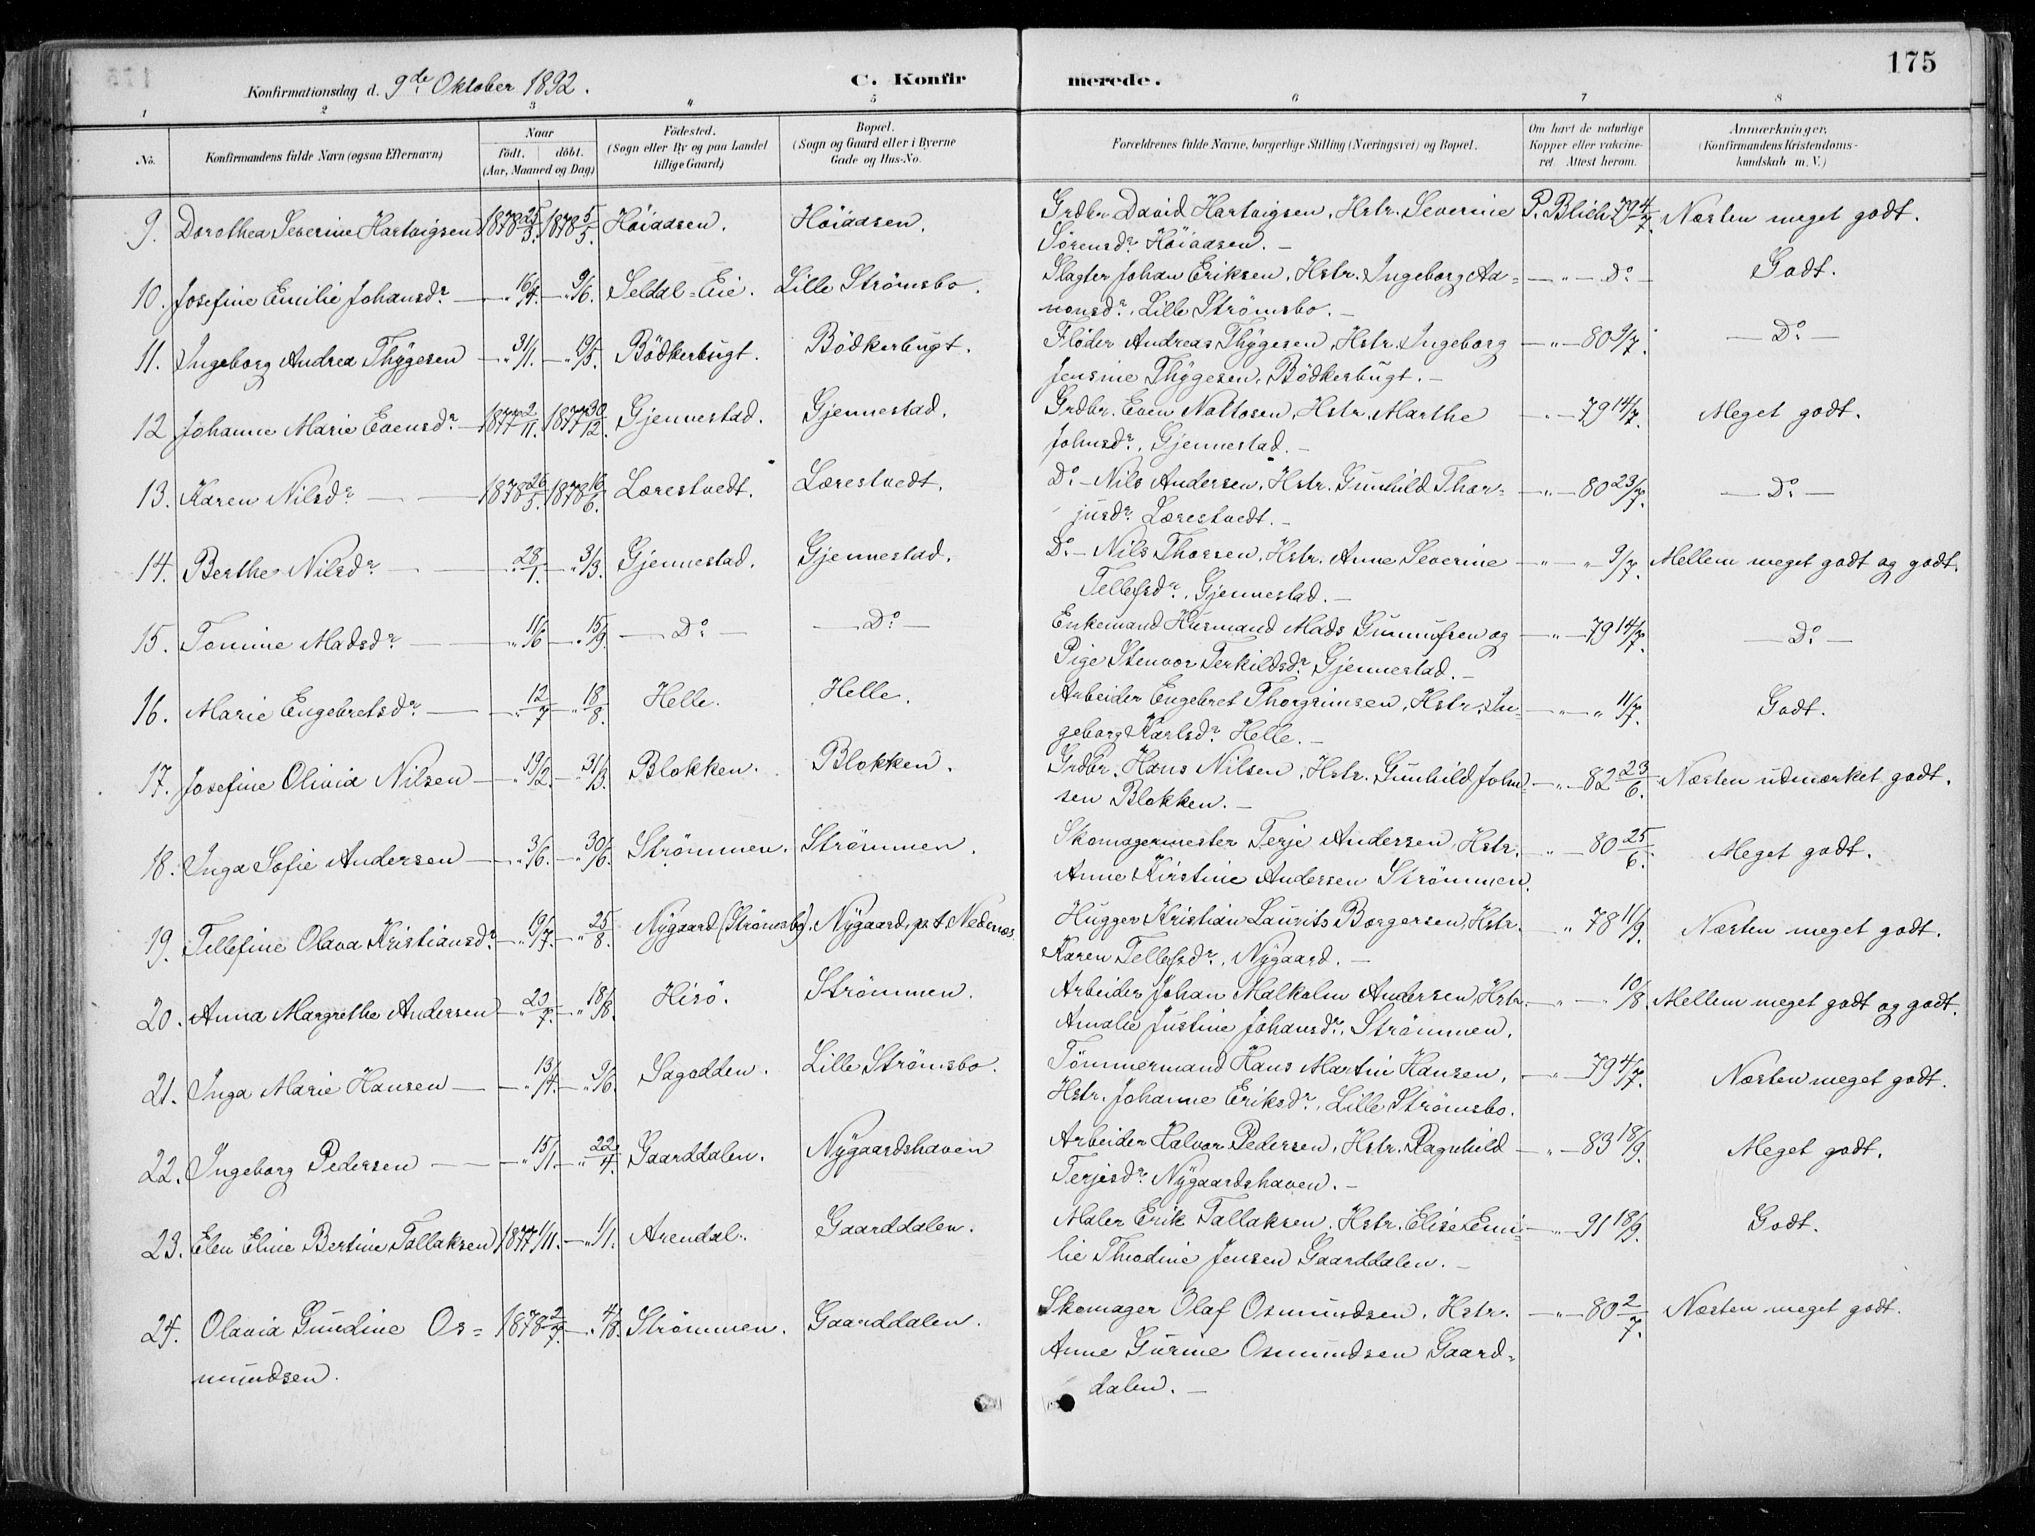 175
Konfirmationsdag d. 9de Oktober 1892.
C. Konfirmerede.
1 2 3 4 5 6 7 8
No. Konfirmandens fulde Navn (ogsaa Efternavn) Naar født. døbt. (Aar, Maaned og Dag) Fødested. (Sogn eller By og paa Landet tillige Gaard) Bopæl. (Sogn og Gaard eller i Byerne Gade og Hus-No.) Forældrenes fulde Navne, borgerlige Stilling (Næringsvei) og Bopæl. Om havt de naturlige Kopper eller vaccineret. Attest herom. Anmærkninger. (Konfirmandens Kristendomskundskab m. V.)
9. Dorothea Severine Hartvigsen 1878 25/3. 1878 5/5. Höiaasen. Höiaasen. Grdbr. David Hartvigsen, Hstr. Severine P. Blich 79 4/7. Næsten meget godt.
Sørensdr. Höiaasen. —
10. Josefine Emilie Johansdr. — „ 16/4. — „ 9/6. Seldal-Eie. Lille Strømsbo. Slagter Johan Eriksen, Hstr. Ingeborg Aa= — „ — Do. Godt.
nonsdr. Lille Strømsbo. —
11. Ingeborg Andrea Thygesen — „ 31/1. — „ 19/5. Bödkerbugt. Bödkerbugt. Fløder Andreas Thygesen, Hstr. Ingeborg — „ — 80 9/7. — Do. —
Jensine Thygesen, Bödkerbugt. —
12. Johanne Marie Evensdr. — 1877 2/11. 1877 30/12. Gjennestad. Gjennestad. Grdbr. Even Nattosen, Hstr. Marthe „ — 79 14/7. Meget godt.
Johnsdr., Gjennestad. —
13. Karen Nilsdr. — 1878 26/5. 1878 16/6. Lærestvedt. Lærestvedt. Do. — Nils Andersen, Hstr. Gunhild Thor= — „ — 80 23/7. — Do. —
jusdr. Lærestvedt. —
14. Berthe Nilsdr. — „ 28/1. — „ 3/3. Gjennestad. Gjennestad. Do. — Nils Thorsen, Hstr. Anne Severine — „ — „ 9/7. Mellem meget godt og godt.
Tellefsdr., Gjennestad. —
15. Tomine Madsdr. — „ 11/6 — „ 15/9. — Do. — — Do. — Enkemand Husmand Mads Gunnufsen og — „ — 79 14/7. — Do. —
Pige Stenvor Terkildsdr. Gjennestad. —
16. Marie Engebretsdr. — „ 12/7 — „ 18/8. Helle. Helle. Arbeider Engebret Thorgrimsen, Hstr. In= — „ — „ 11/7. Godt.
geborg Karlsdr. Helle. —
17. Josefine Olivia Nilsen — „ 19/2. — „ 31/3. Blokken. Blokken. Grdbr. Hans Nilsen, Hstr. Gunhild John= — „ — 82 23/6. Næsten udmærket godt.
sen Blokken. —
18. Inga Sofie Andersen — „ 3/6. — „ 30/6. Strømmen. Strømmen. Skomagermester Terje Andersen, Hstr. — „ — 80 25/6. Meget godt.
Anne Kirstine Andersen Strømmen.
19. Tellefine Olava Kristiansdr. — „ 19/7. — „ 25/8. Nygaard (Strømsbo). Nygaard, p. t. Nedenæs. Hugger Kristian Laurits Borgersen, Hstr. „ 78 11/9. Næsten meget godt.
Karen Tellefsdr., Nygaard. —
20. Anna Margrethe Andersen — „ 23/7. — „ 18/8. Hisö. Strømmen. Arbeider Johan Malkolm Andersen, Hstr. „ — „ 10/8. Mellem meget godt og godt.
Amalie Justine Johansdr., Strømmen.
21. Inga Marie Hansen — „ 13/4. — „ 9/6. Sagodden. Lille Strømsbo. Tömmermand Hans Martin Hansen, — „ — 79 4/7. Næsten meget godt.
Hstr. Johanne Eriksdr., Lille Strømsbo.
22. Ingeborg Pedersen — „ 15/1. — „ 22/4. Gaarddalen. Nygaardshaven Arbeider Halvor Pedersen, Hstr. Ragnhild — „ — 83 18/9. Meget godt.
Terjesdr. Nygaardshaven. —
23. Elen Eline Bertine Tallaksen 1877 1/11. — „ 1/1. Arendal. Gaarddalen. Maler Erik Tallaksen, Hstr. Elise Emi= — „ — 91 18/9. Godt.
lie Theodine Jensen Gaarddalen. —
24. Olavia Gundine Os= 1878 2/7. — „ 4/8. Strømmen. Gaarddalen. Skomager Olaf Osmundsen, Hstr. — „ — 80 2/7. Næsten meget godt.
mundsen. Anne Gurine Osmundsen Gaard=
dalen. —